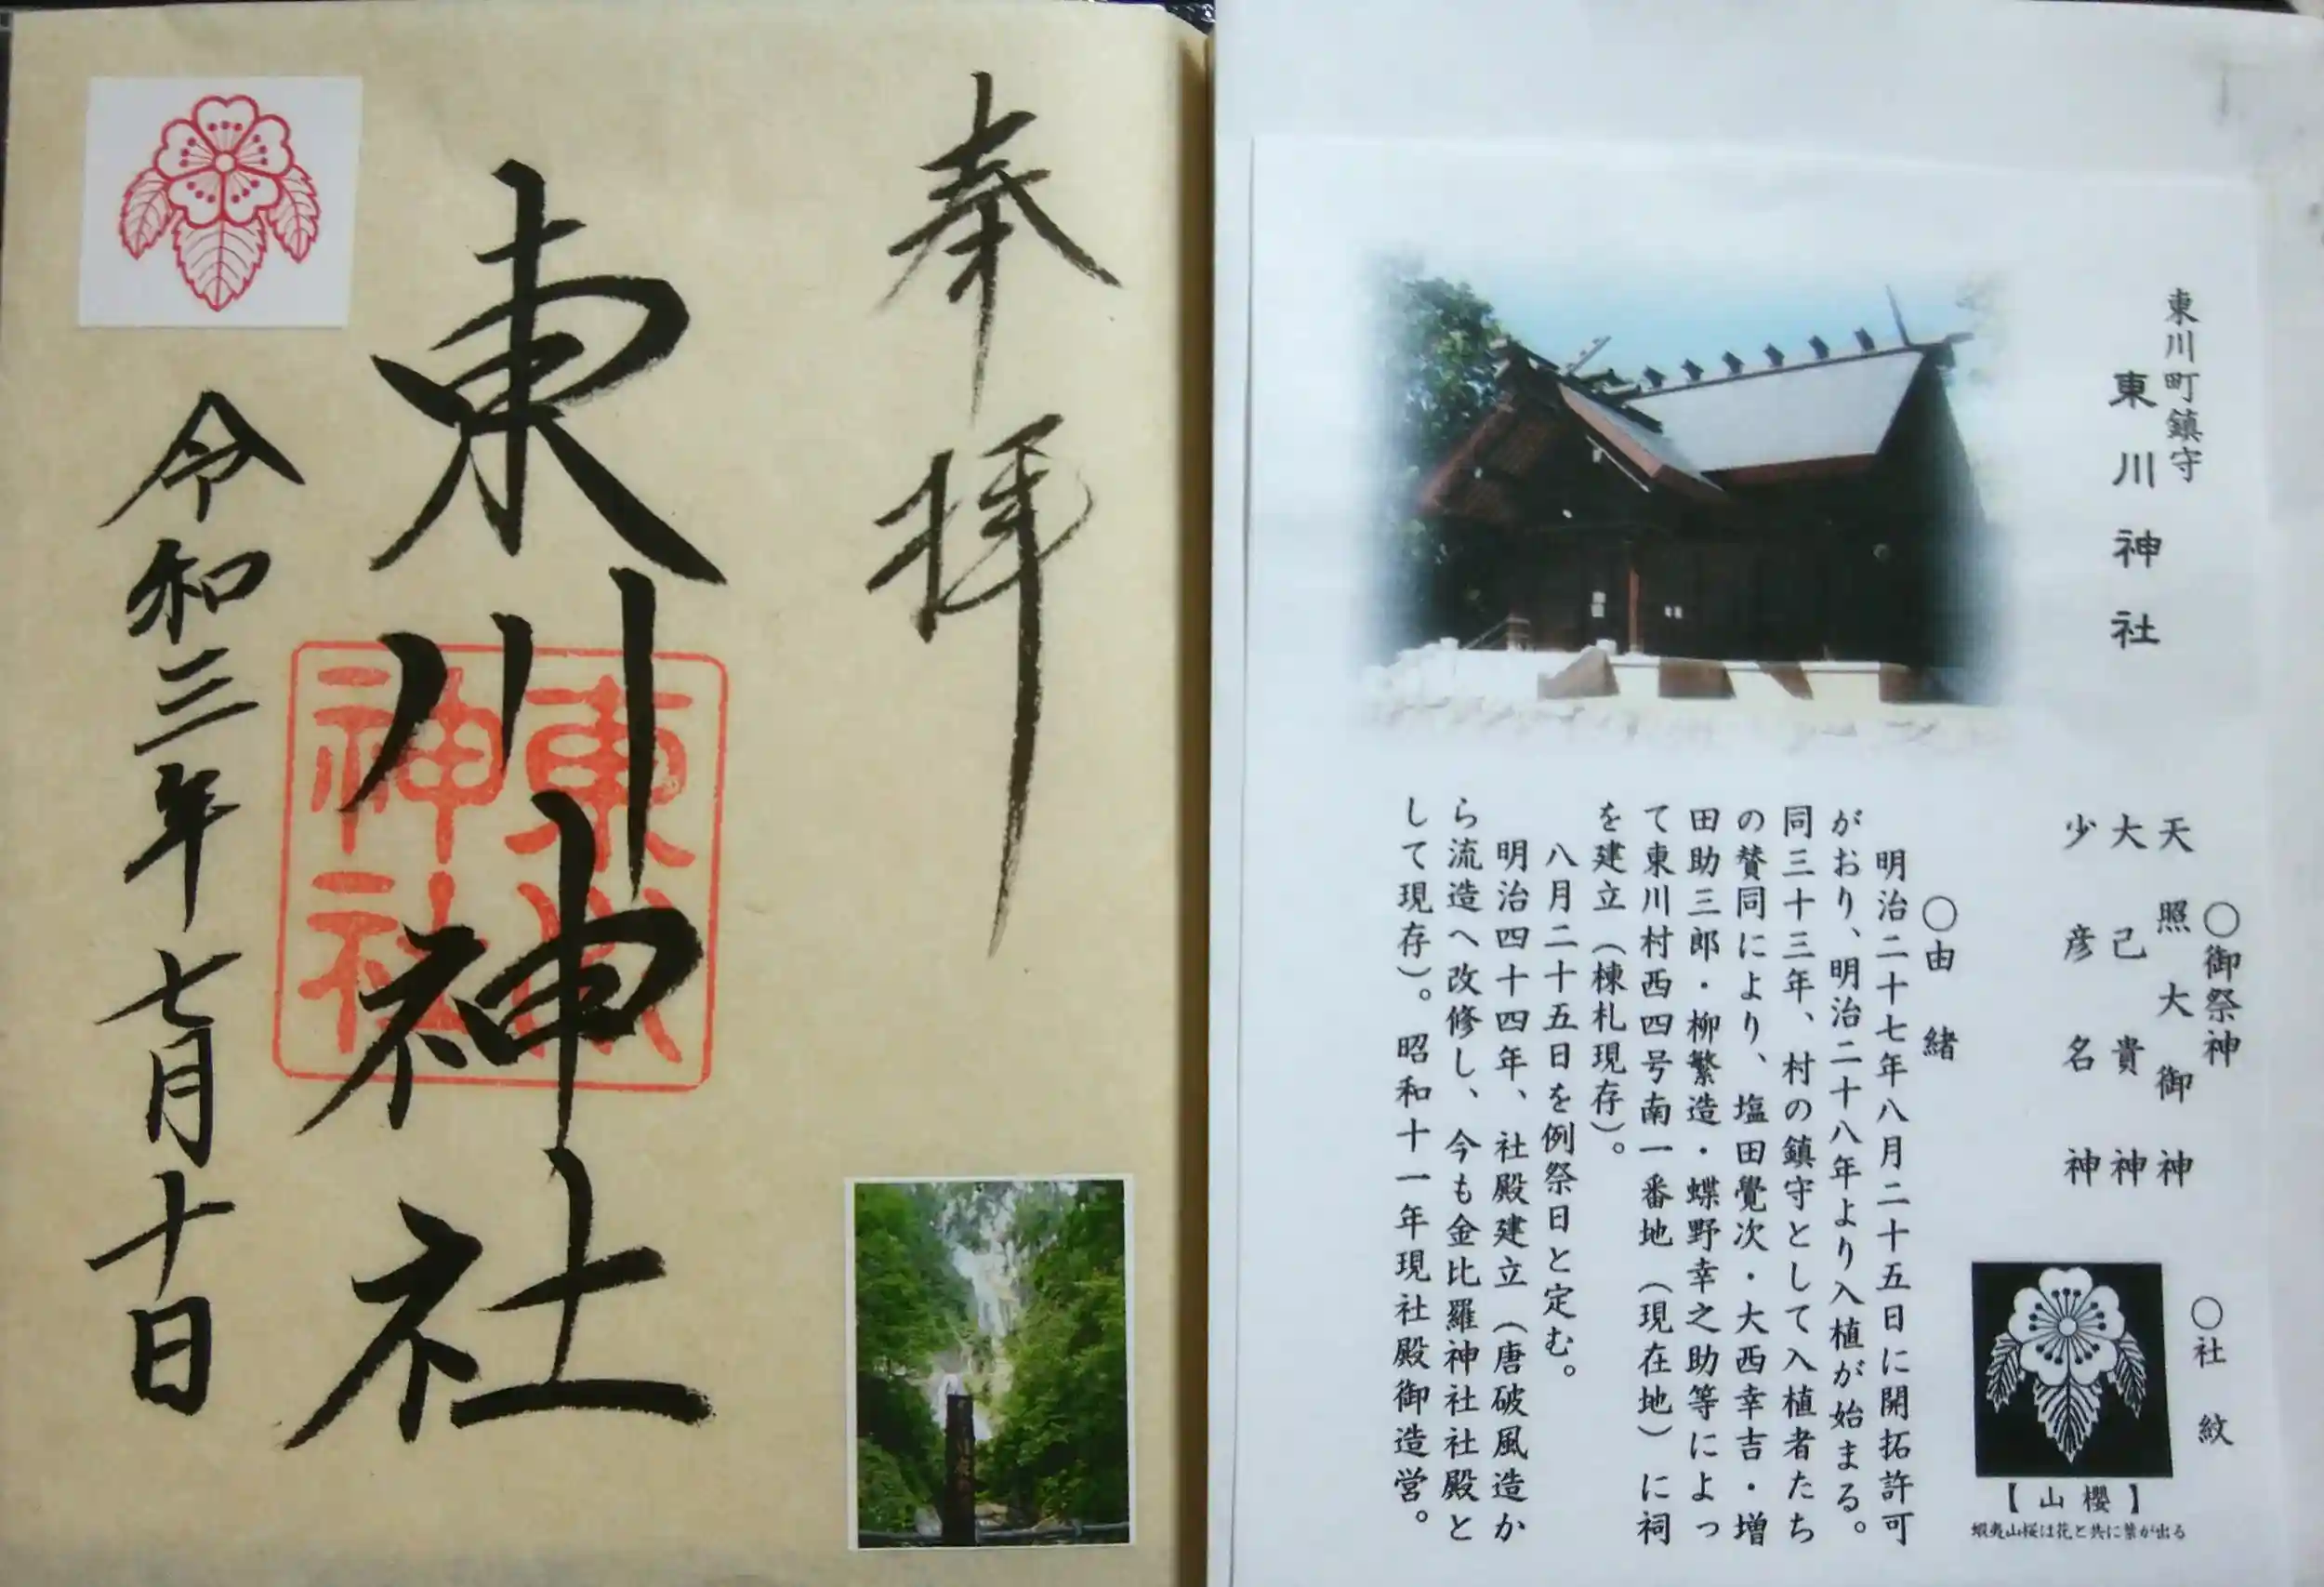 奉拝
東川神社
東川神社
令和三年七月十日
東川町鎮守
東川神社
〇御祭神
天照大御神
大己貴神
少彦名神
〇社紋
【山櫻】
蝦夷山桜は花と共に葉が出る
〇由緒
明治二十七年八月二十五日に開拓許可
がおり、明治二十八年より入植が始まる。
同三十三年、村の鎮守として入植者たち
の賛同により、塩田覺次・大西幸吉・増
田助三郎・柳繁造・蝶野幸之助等によっ
て東川村西四号南一番地（現在地）に祠
を建立（棟札現存）。
八月二十五日を例祭日と定む。
明治四十四年、社殿建立（唐破風造か
ら流造へ改修し、今も金比羅神社社殿と
して現存）。昭和十一年現社殿御造営。